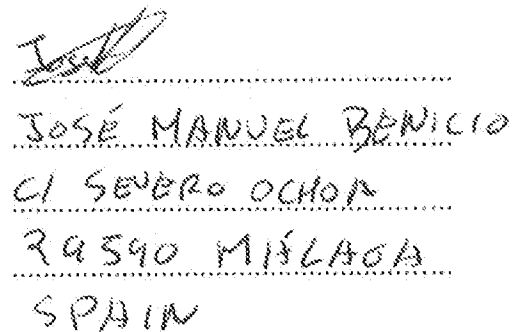 JOSÉ MANUEL BENICIO
C/ SEVERO OCHOA
29590 MÁLAGA
SPAIN